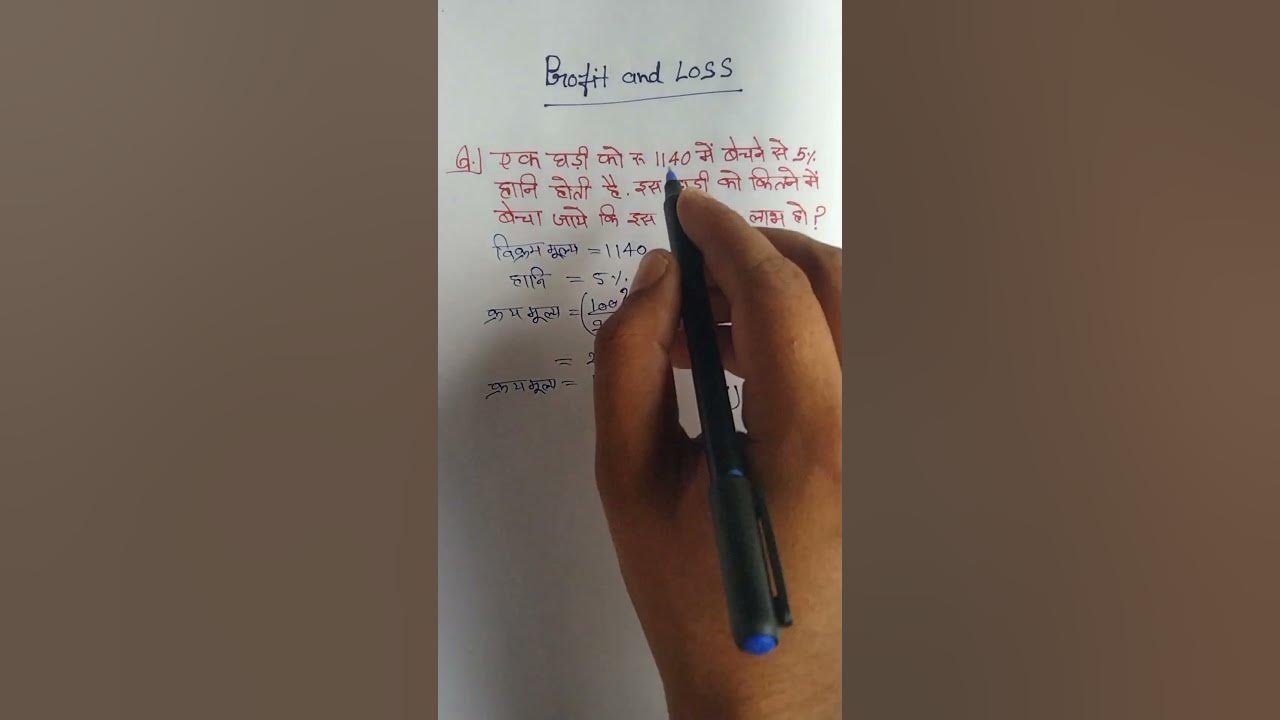 Profit and Loss
Q.] एक घड़ी को रू 1140 में बेचने से 5%
हानि होती है. इस को कितने में
बेचा जाये कि इस लाभ हो?
विक्रय मूल्य = 1140
हानि = 5%
क्रय मूल्य = (100
= 
क्रय मूल्य =